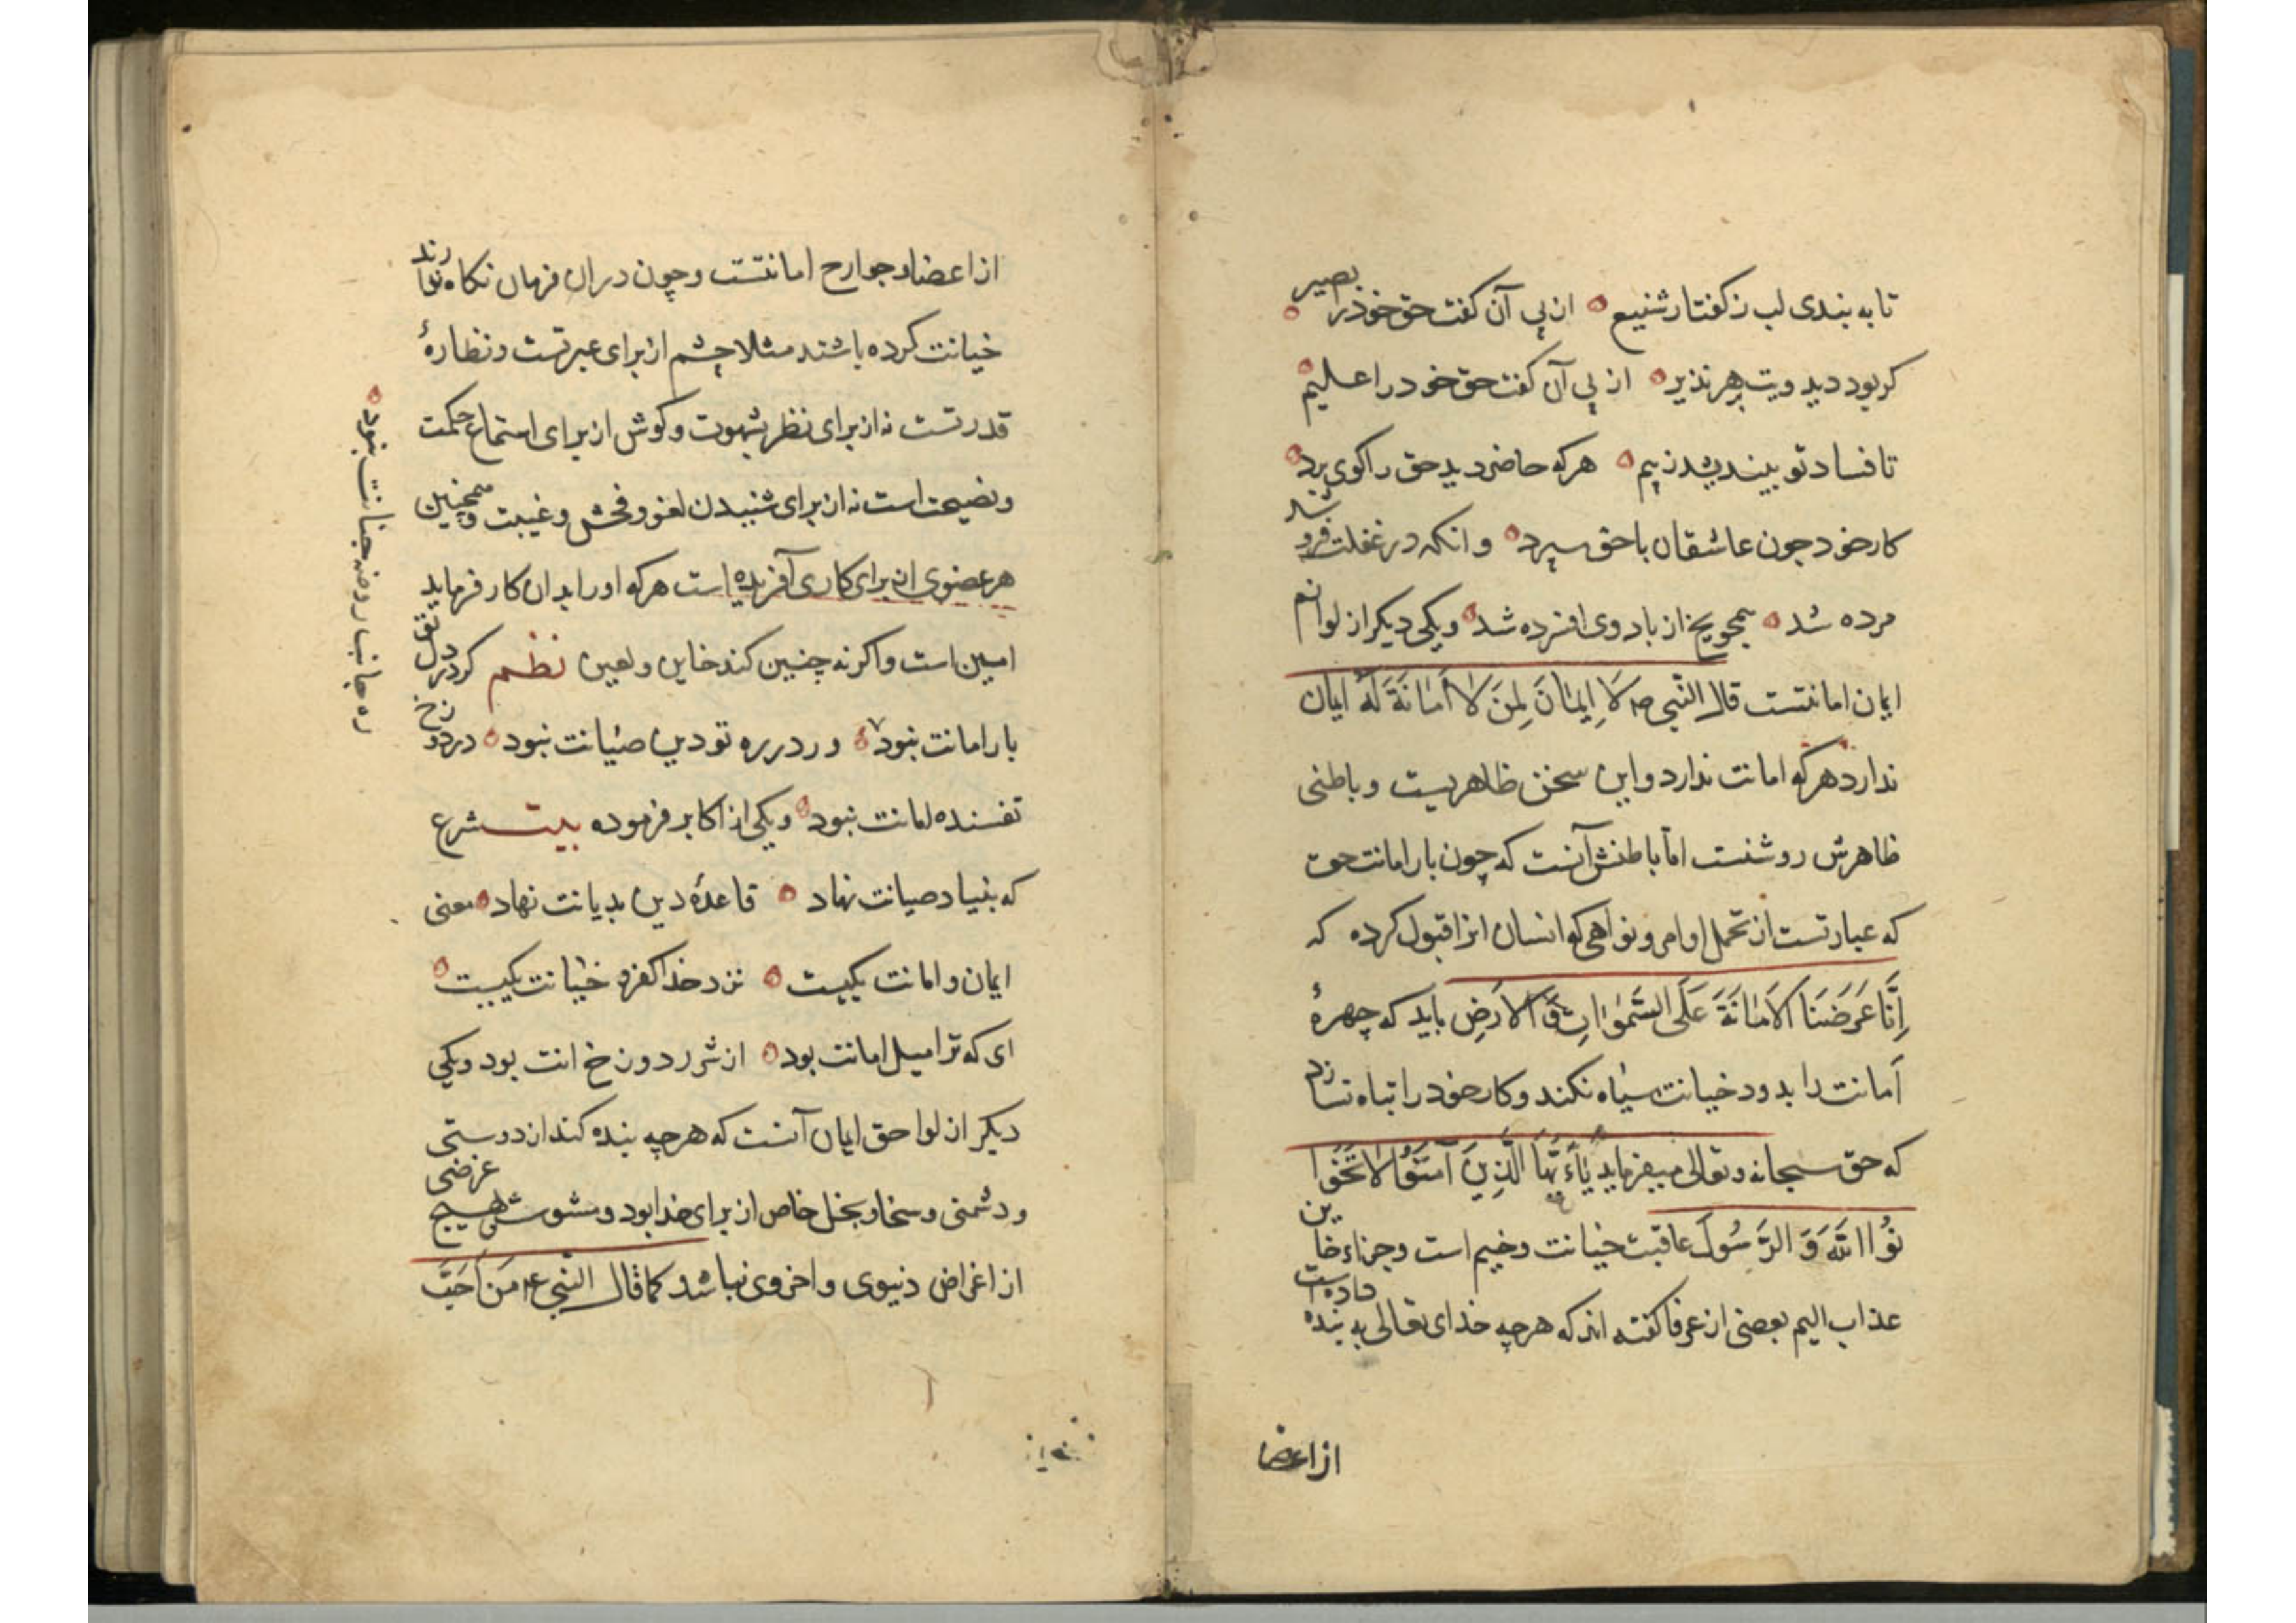 تا به بندی لب ز کفتار شنیع ه از پی آن کفت حق خود را بصیر ه
کر بود دید ویت هر نذیر ه از پی آن کفت حق خود را علیم ه
تا فساد تو بیندیشد ز بیم ه هر که حاضر دید حق را کوی برد ه
کار خود جون عاشقان با حق سپرد ه و انکه در غفلت فرو شد
مرده شد ه همجو یخ از باد وی افسرده شد ه و یکی دیکر از لوازم
ایمان امانتست قال النّبی صم لَا اِیمٰانَ لِمَنَ لَا اَمٰانَةَ لَهُ ایمان
ندارد هر که امانت ندارد و این سخن ظاهریست و باطنی
ظاهرش روشنست امّا باطنش آنست که چون بار امانت حق
که عبارتست از تحمل اوامر و نواهی که انسان انرا قبول کرده که
اِنَّا عَرَضنَا الاَمٰانَةَ عَلَی السَّمٰوٰاتِ وَ الاَرَضِ باید که چهرهٔ
اَمانت را بدود خیانت سیٰاه نکند و کار خود را تباه نسازد
که حق سبحانه و تعالی میفرماید یٰاءَیُّهَا الَّذِینَ آمَنُوا لَا تَخُو
نُوا اللّٰهَ وَ الرَّسُولَ عاقبت خیانت وخیم است و جزاء خاین
عذاب الیم بعضی از عرفا کفته اند که هر چه خدای تعالی به بنده داده است
از اعضا
از اعضا و جوارح امانتست و چون در ان فرمان نکاه ندارند
خیانت کرده باشند مثلا چشم از برای عبرتست و نظارهٔ
قدرتست نه از برای نظر بشهوت و کوش از برای استماع حکمت
و نصیحت است نه از برای شنیدن لغو و فحش و غیبت و همچنین
هر عضوی از برای کاری آفریده است هر که او را بدان کار فرماید
امین است و اکر نه چنین کند خاین و لعین نظم کر در دل تو
بار امانت نبود ه ور در ره تو دین صیٰانت نبود ه در دوزخ
تفسنده امانت نبود ه و یکی از اکابر فرموده بیت شرع
که بنیاد صیانت نهاد ه قاعدهٔ دین بدیانت نهاد ه معنی
ایمان و امانت یکیست ه نزد خدا کفر و خیٰانت یکیست ه
ای که ترا میل امانت بود ه از شرر دوزخ انت بود و یکی
دیکر از لواحق ایمان آنست که هر چه بنده کند از دوستی
و دشمنی و سخا و بخل خاص از برای خدا بود و مشوش بهیچ غرضی
از اغراض دنیوی و اخروی نباشد کما قال النّبی عم مَن اَحَبَّ
ره جانب روضه جنانت نبود ه